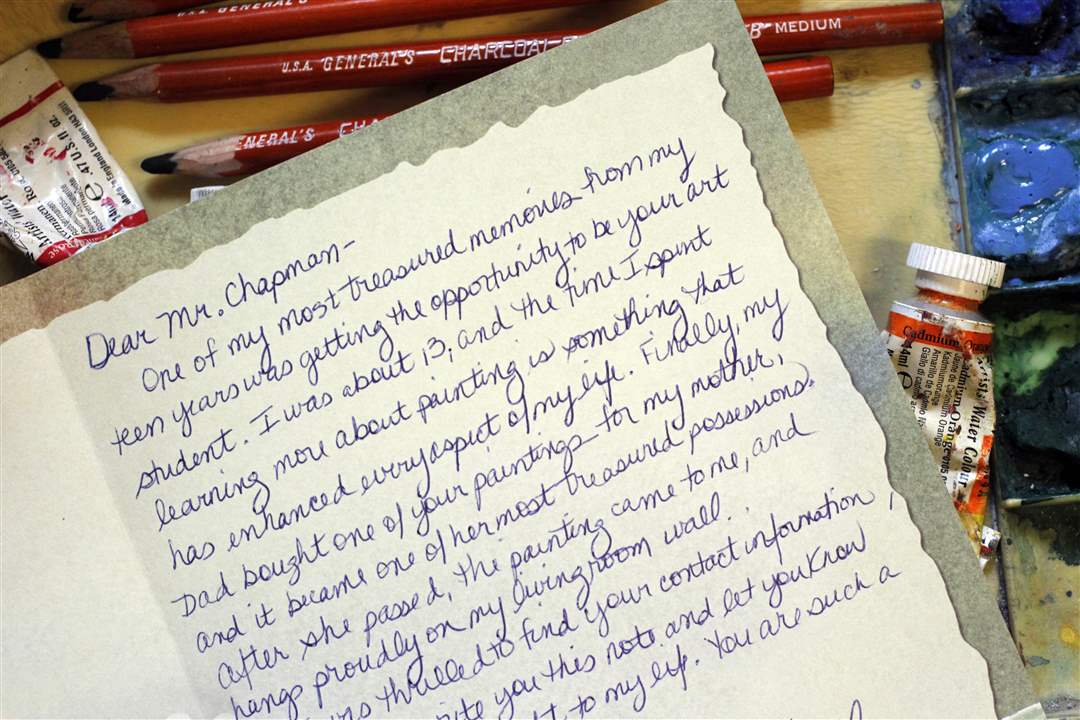 U.S.A. GENERAL'S
U.S.A. GENERAL'S CHARCOAL
B MEDIUM
GENERAL'S CHA
.47 U.S. fl. oz.
Made in England London HA3 5RH
Dear Mr. Chapman-
One of my most treasured memories from my
teen years was getting the opportunity to be your art
student. I was about 13, and the time I spent
learning more about painting is something that
has enhanced every aspect of my life. Finally, my
Dad bought one of your paintings for my mother,
and it became one of her most treasured possessions.
After she passed, the painting came to me, and
hangs proudly on my livingroom wall.
thrilled to find your contact information,
you this note and let you know
to my life. You are such a
Cadmium Orange
Artists' Water Colour
Cadmium Orange